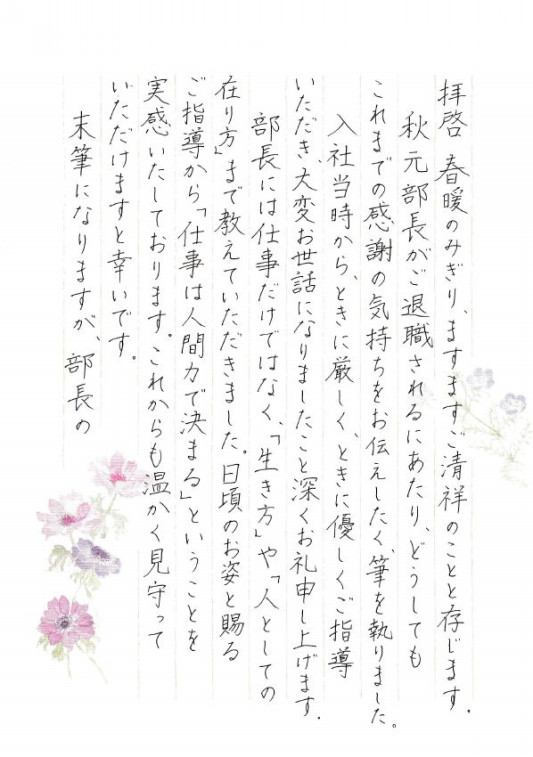 拝啓 春暖のみぎり、ますますご清祥のことと存じます。
秋元部長がご退職されるにあたり、どうしても
これまでの感謝の気持ちをお伝えしたく、筆を執りました。
入社当時から、ときに厳しく、ときに優しくご指導
いただき、大変お世話になりましたこと深くお礼申し上げます。
部長には仕事だけではなく、「生き方」や「人としての
在り方」まで教えていただきました。日頃のお姿と賜る
ご指導から「仕事は人間力で決まる」ということを
実感いたしております。これからも温かく見守って
いただけますと幸いです。
末筆になりますが、部長の